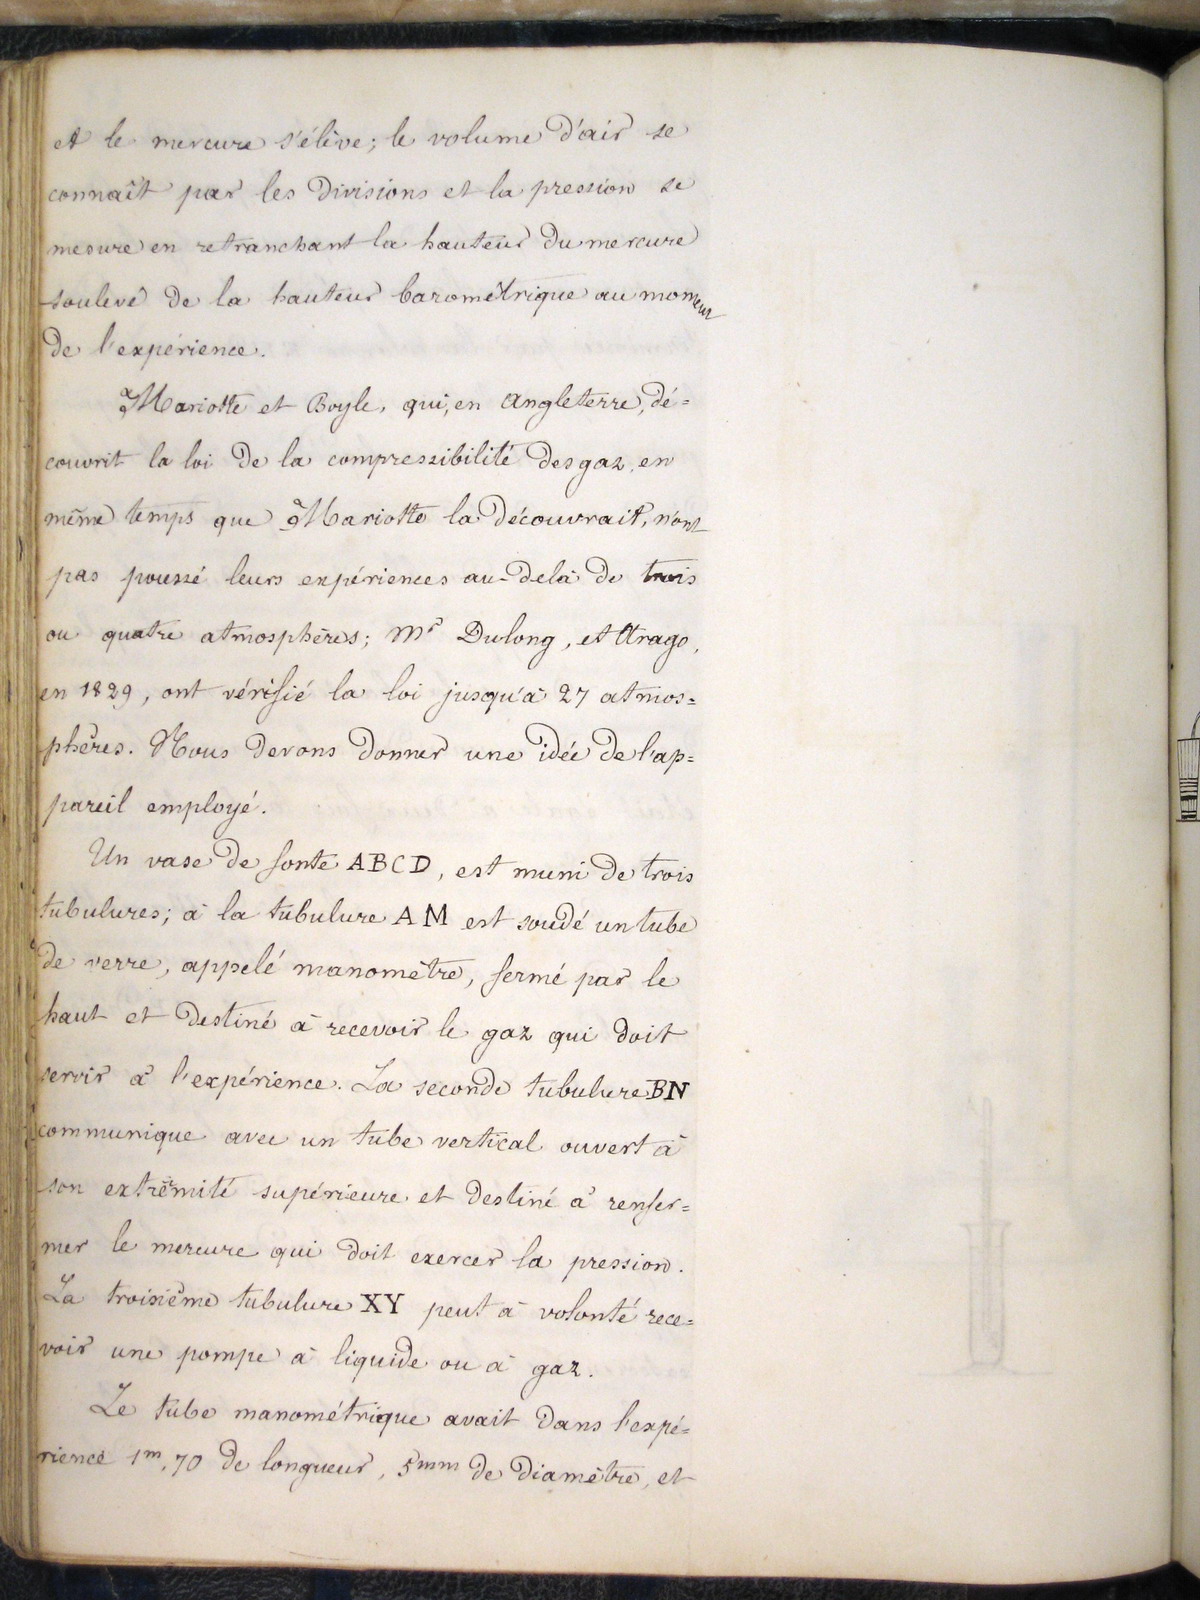 et le mercure s'élève; le volume d'air se
connaît par les divisions et la pression se
mesure en retranchant la hauteur du mercure
soulevé de la hauteur barométrique au moment
de l'expérience.
Mariotte et Boyle, qui, en Angleterre, dé=
couvrit la loi de la compressibilité des gaz, en
même temps que Mariotte la découvrait, n'ont
pas poussé leurs expériences au-delà de trois
ou quatre atmosphères; Mrs Dulong, et Arago,
en 1829, ont vérifié la loi jusqu'à 27 atmos=
phères. Nous devons donner une idée de l'ap=
pareil employé.
Un vase de fonte ABCD, est muni de trois
tubulures; à la tubulure AM est soudé un tube
de verre, appelé manomètre, fermé par le
haut et destiné à recevoir le gaz qui doit
servir à l'expérience. La seconde tubulure BN
communique avec un tube vertical ouvert à
son extrêmité supérieure et destiné à renfer=
mer le mercure qui doit exercer la pression.
La troisième tubulure XY peut à volonté rece=
voir une pompe à liquide ou à gaz.
Le tube manométrique avait dans l'expé=
rience 1m,70 de longueur, 5mm de diamètre, et